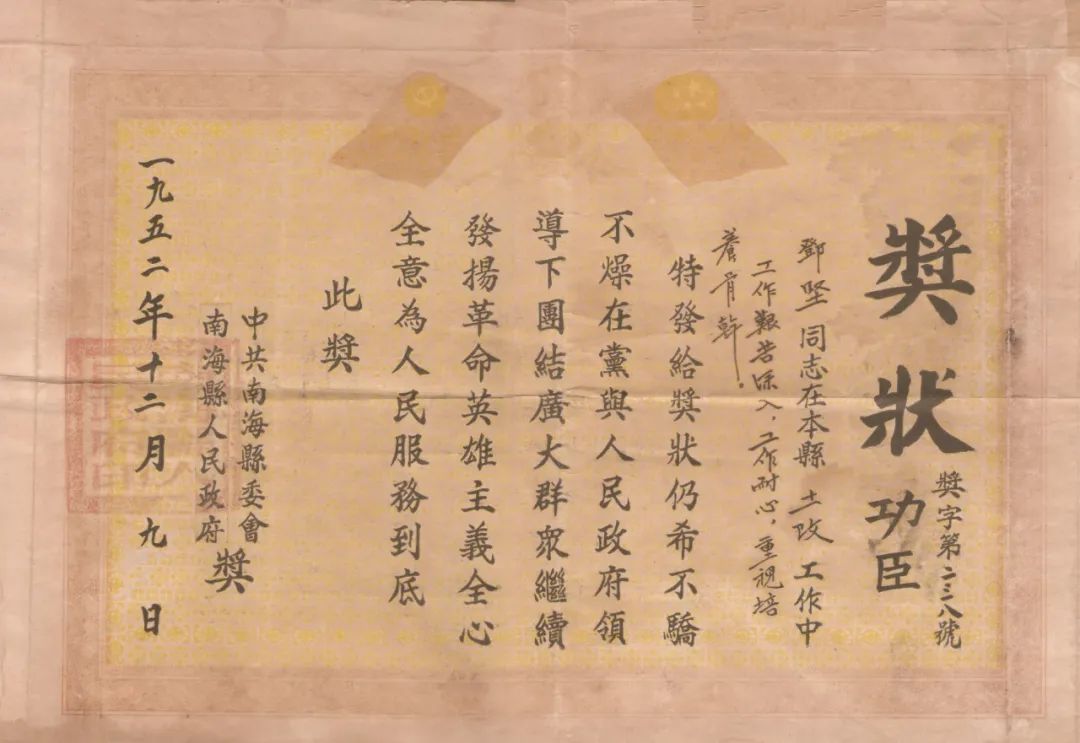 獎狀功臣
獎字第二三八號
鄧堅同志在本縣土改工作中
工作艱苦深入，工作耐心，重視培
養骨幹。
特發給獎狀仍希不驕
不燥在黨與人民政府領
導下團結廣大群眾繼續
發揚革命英雄主義全心
全意為人民服務到底
此獎
中共南海縣委會
南海縣人民政府
獎
一九五二年十二月九日